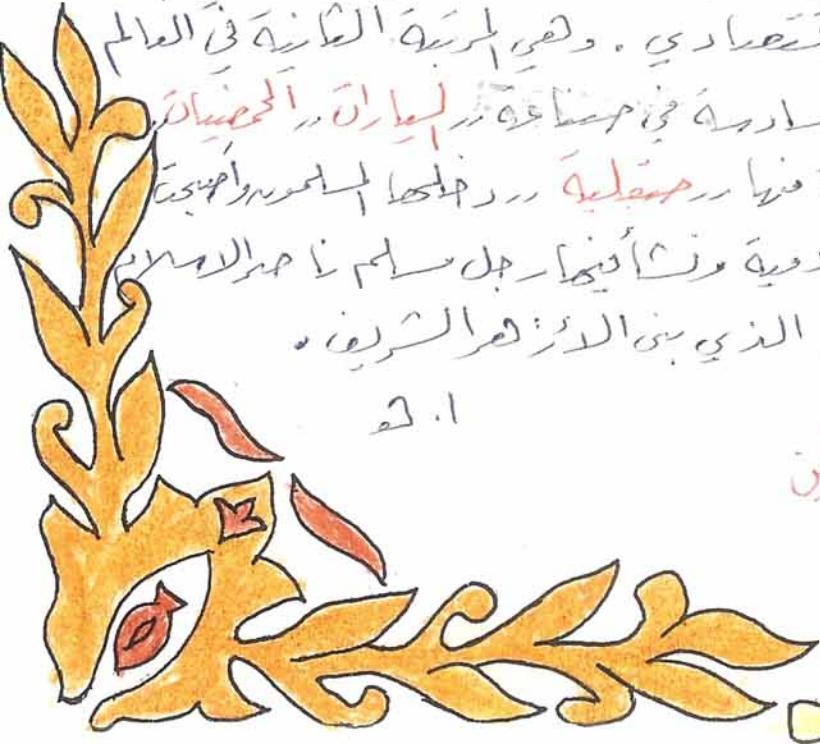 ـتصادي . وهي المرتبة الثانية في العالم
سادسة في صناعة ,, السيارات ,, الحمضيات,,
منها ,, صقلية ,, دخلها المسلمون وأصبحت
ونشأ فيها رجل مسلم ناصر الإسلام
الذي بنى الأزهر الشريف .
ا. هـ
ين